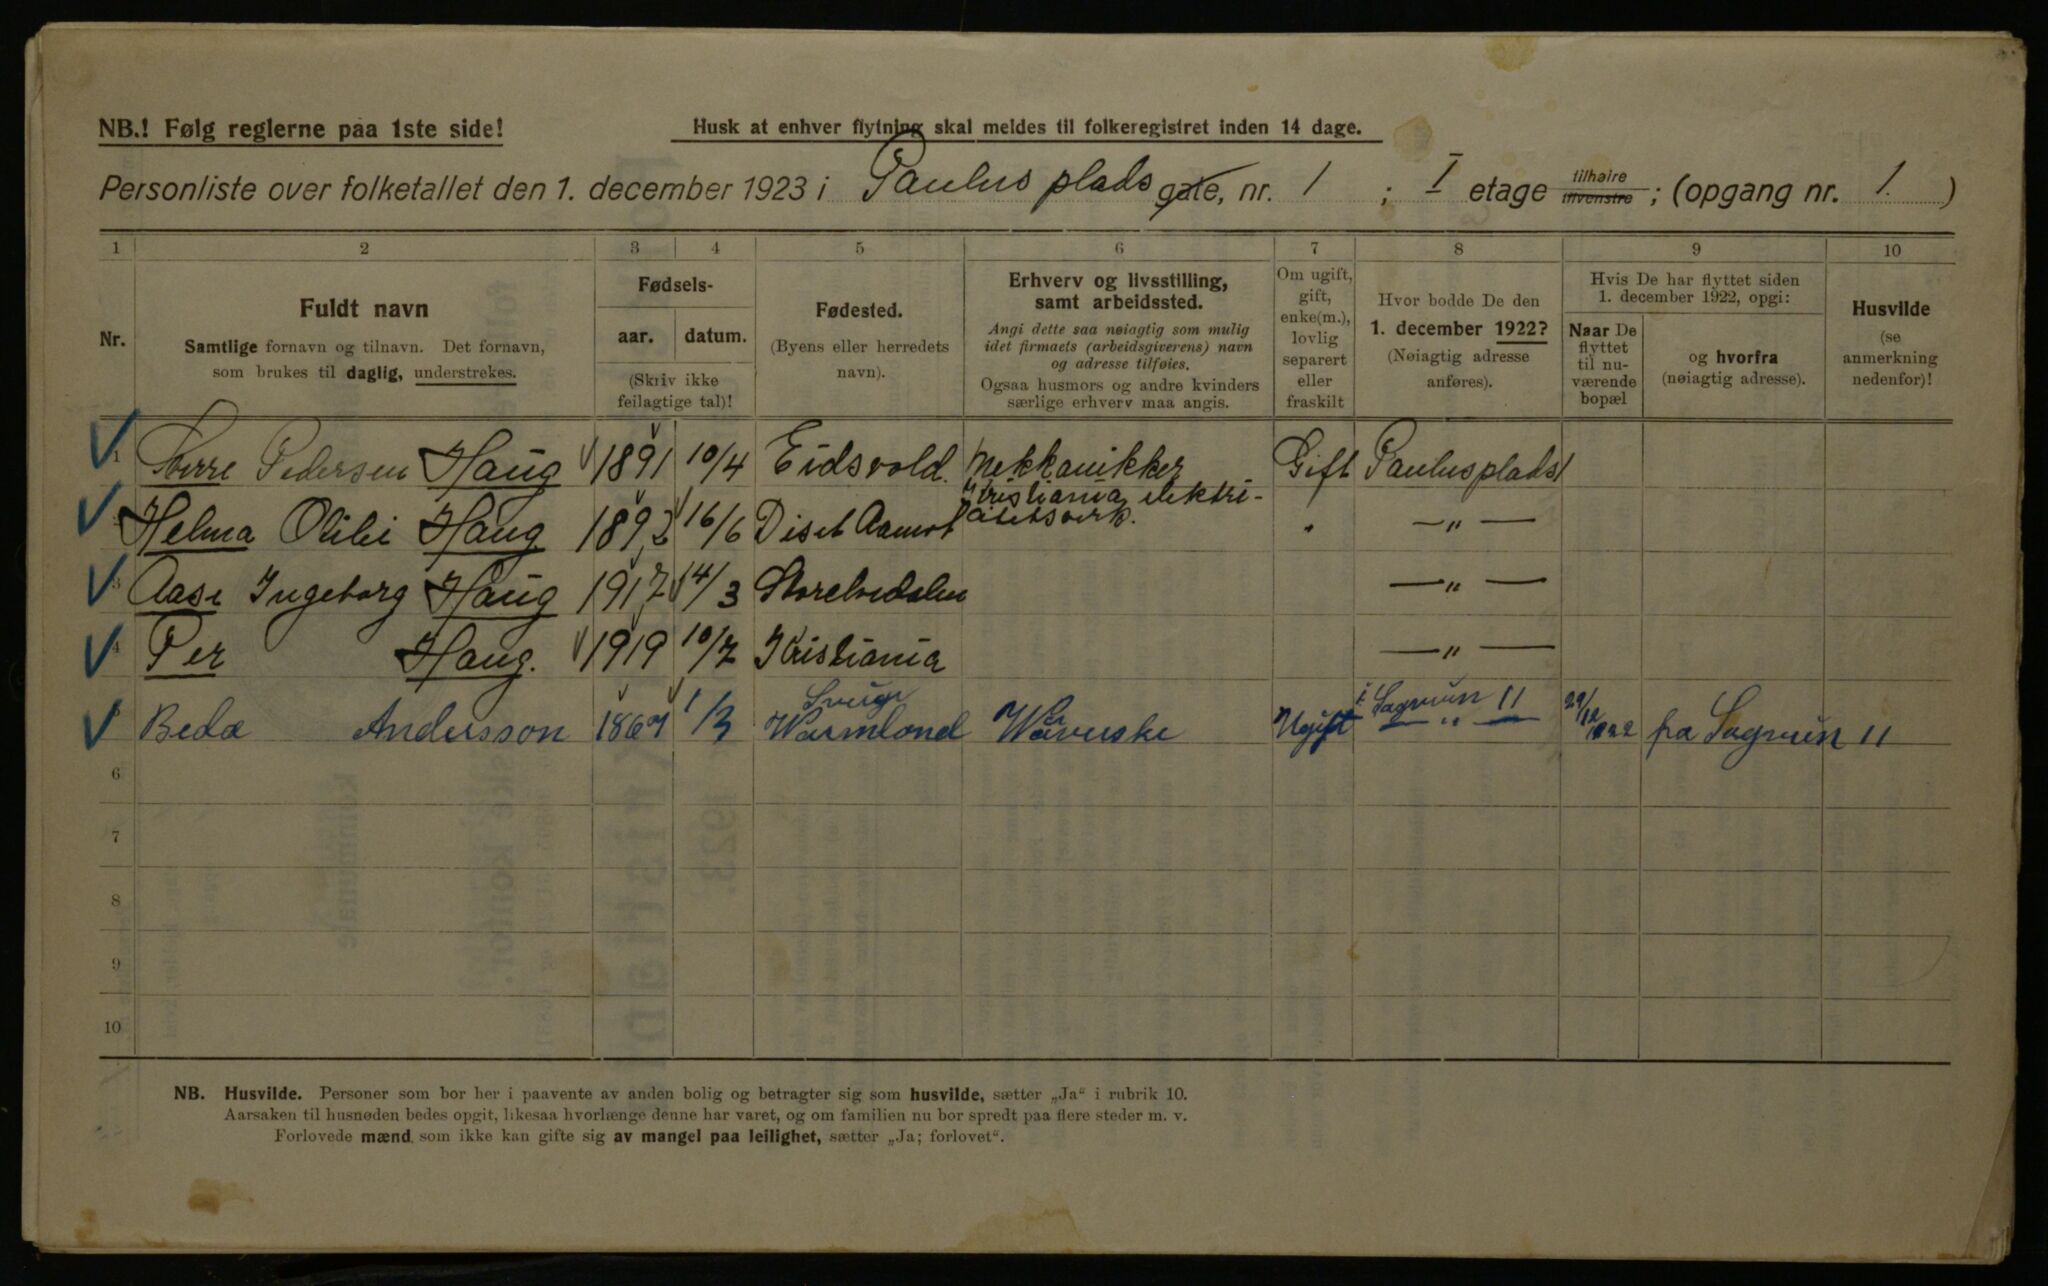 NB.! Følg reglerne paa 1ste side!
Husk at enhver flytning skal meldes til folkeregistret inden 14 dage.
Personliste over folketallet den 1. december 1923 i Paulus plads gate, nr. 1 ; I etage tilhøire tilvenstre ; (opgang nr. 1. )
1 2 3 4 5 6 7 8 9 10
Nr.
Fuldt navn
Samtlige fornavn og tilnavn. Det fornavn,
som brukes til daglig, understrekes.
Fødsels-
aar. datum.
(Skriv ikke
feilagtige tal)!
Fødested.
(Byens eller herredets
navn).
Erhverv og livsstilling,
samt arbeidssted.
Angi dette saa nøiagtig som mulig
idet firmaets (arbeidsgiverens) navn
og adresse tilføies.
Ogsaa husmors og andre kvinders
særlige erhverv maa angis.
Om ugift,
gift,
enke(m.),
lovlig
separert
eller
fraskilt
Hvor bodde De den
1. december 1922?
(Nøiagtig adresse
anføres).
Hvis De har flyttet siden
1. december 1922, opgi:
Naar De
flyttet
til nu-
værende
bopæl
og hvorfra
(nøiagtig adresse).
Husvilde
(se
anmerkning
nedenfor)!
1 Pedersen Haug 1891 10/4 Eidsvold. Mekkanikker Gift Paulusplads 1
Kristiania elektri-
citetsverk.
Helma Haug 1892 16/6 Diset " — " —
3 Aase Ingeborg Haug 1917 14/3 — " —
4 Per Haug. 1919 10/7 Kristiania — " —
Beda Andersson 1867 1/3 Warmland Ugift — " — 29/12 1922 fra 11
6
7
8
9
10
NB. Husvilde. Personer som bor her i paavente av anden bolig og betragter sig som husvilde, sætter „Ja“ i rubrik 10.
Aarsaken til husnøden bedes opgit, likesaa hvorlænge denne har varet, og om familien nu bor spredt paa flere steder m. v.
Forlovede mænd som ikke kan gifte sig av mangel paa leilighet, sætter „Ja; forlovet“.